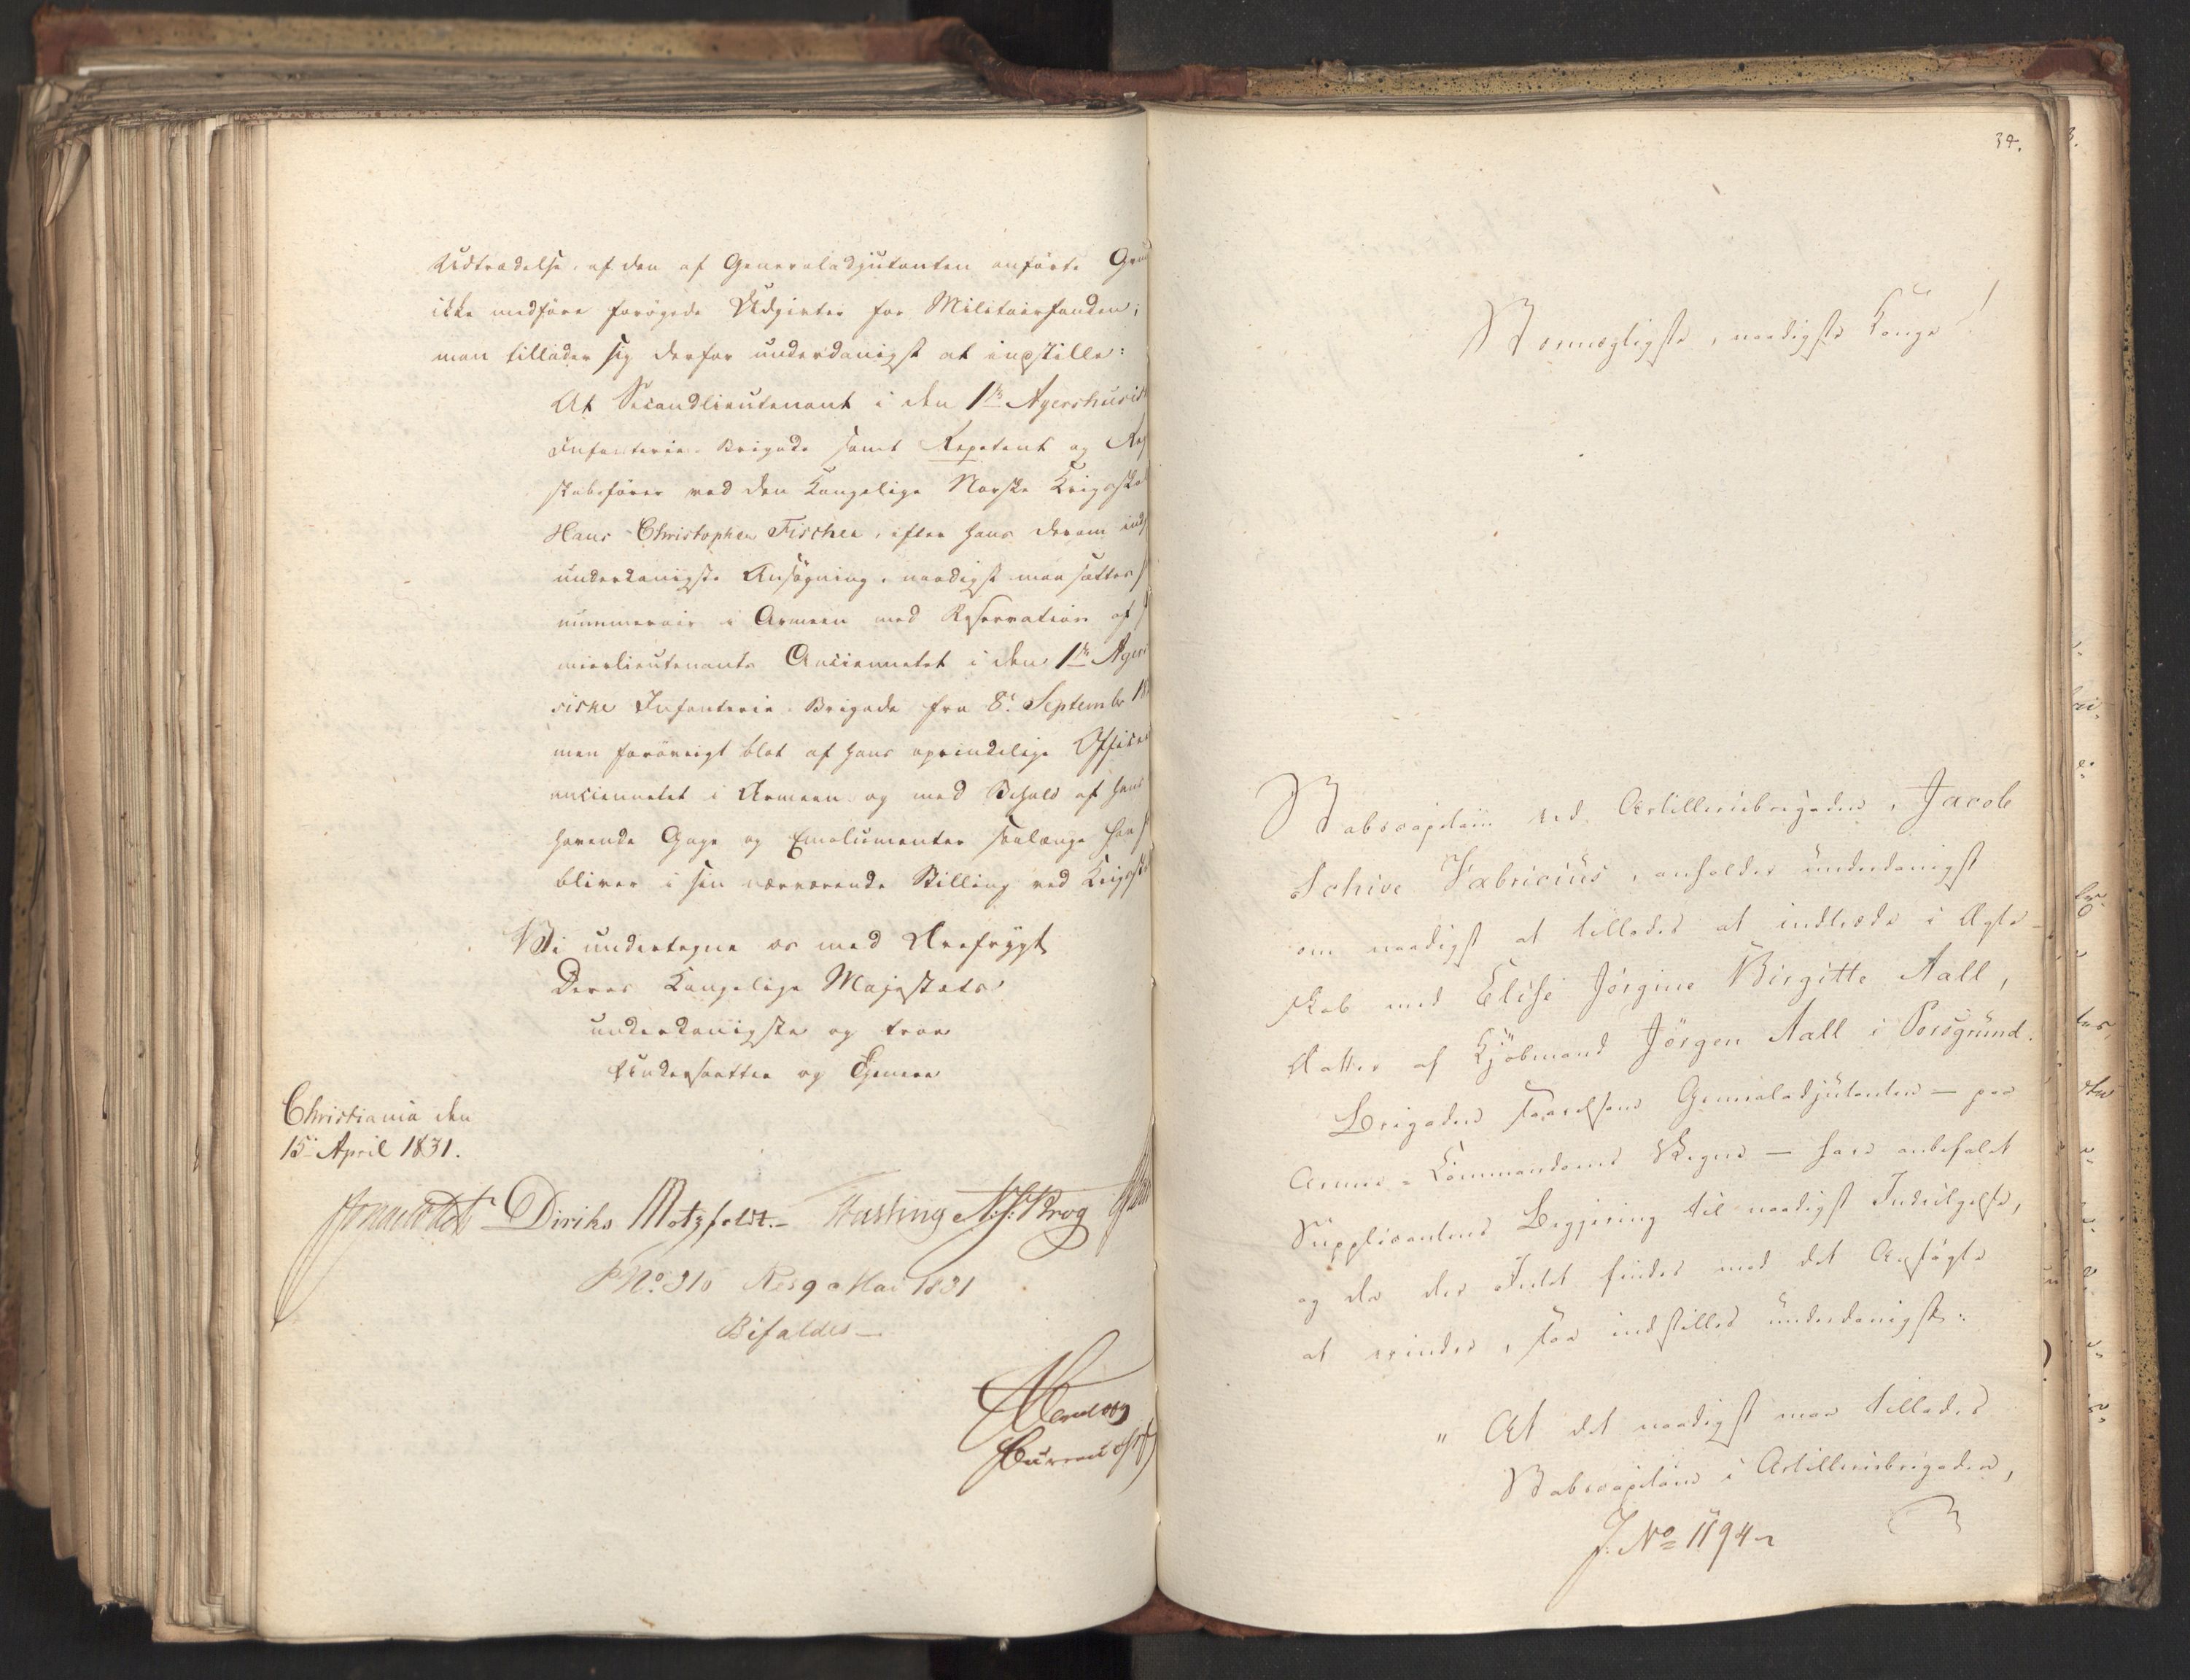 Udtrædelse, af den af Generaladjutanten anførte
ikke medføre forøgede Udgifter for Militairfonden;
man tillader sig derfor underdanigst at inpstille:
At Secondlieutenant i den 1ste
Infanterie-Brigade samt Repetent og
skabsfører ved den Kongelige Norske
Hans Christopher Fischer, efter hans derom
underdanigste Ansøgning, naadigst maa sættes
nummerair i Armeen med Reservation af
mierlieutenants Anciennetet i den 1ste
siske Infanterie-Brigade fra 8de September
men forøvrigt blot af hans oprindelige
anciennetet i Armeen og med Behold af hans
havende Gage og Emolumenter saalænge han
bliver i sin nærværende Stilling ved
Vi undertegne os med Ærefrygt
Deres Kongelige Majestæts
underdanigste og troe
Undersaatter og Tjenere
Christiania den
15de April 1831.
Diriks Motzfeldt. Fasting N. J. Krog
No. 310 Res 9 Mai 1831
Bifaldes
34.
Stormægtigste, naadigste Konge!
Stabscapitain ved Artilleriebrigaden, Jacob
Schive Fabricius, anholder underdanigst
om naadigst at tillades at indtræde i Ægte-
skab med Elise Jørgine Birgitte Aall,
Datter af Kjøbmand Jörgen Aall i Porsgrund.
Brigaden saavelsom Generaladjutanten — paa
Armee-Kommandoens Vegne — have anbefalet
Supplicantens Begjering til naadigst Indvilgelse,
og da der Intet findes mod det Ansøgte
at erindre, saa indstilles underdanigst:
" At det naadigst maa tillades
Stabscapitain i Artilleriebrigaden,
J. No 1194